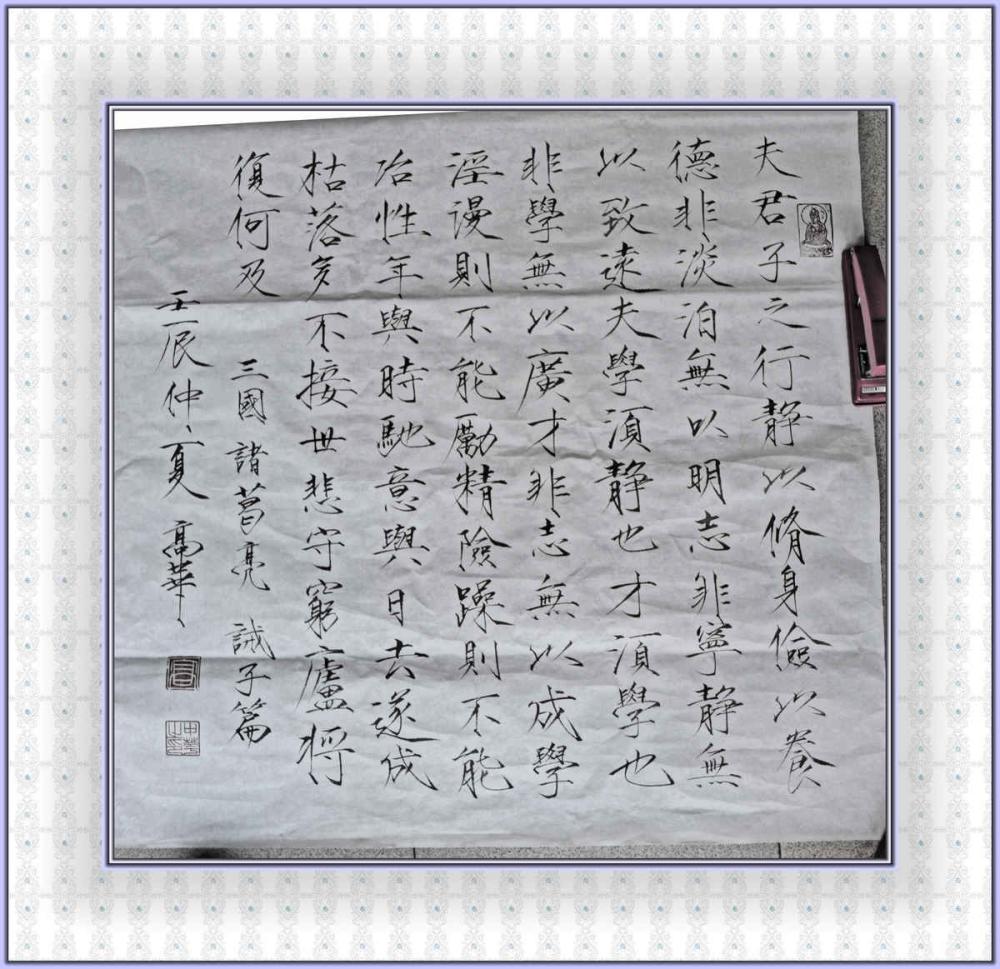 夫君子之行静以脩身儉以養
德非淡泊無以明志非寧静無
以致遠夫學須静也才須學也
非學無以廣才非志無以成學
淫漫則不能勵精險躁則不能
冶性年與時馳意與日去遂成
枯落多不接世悲守窮廬將
復何及 三國 諸葛亮 誡子篇
壬辰仲夏 高華